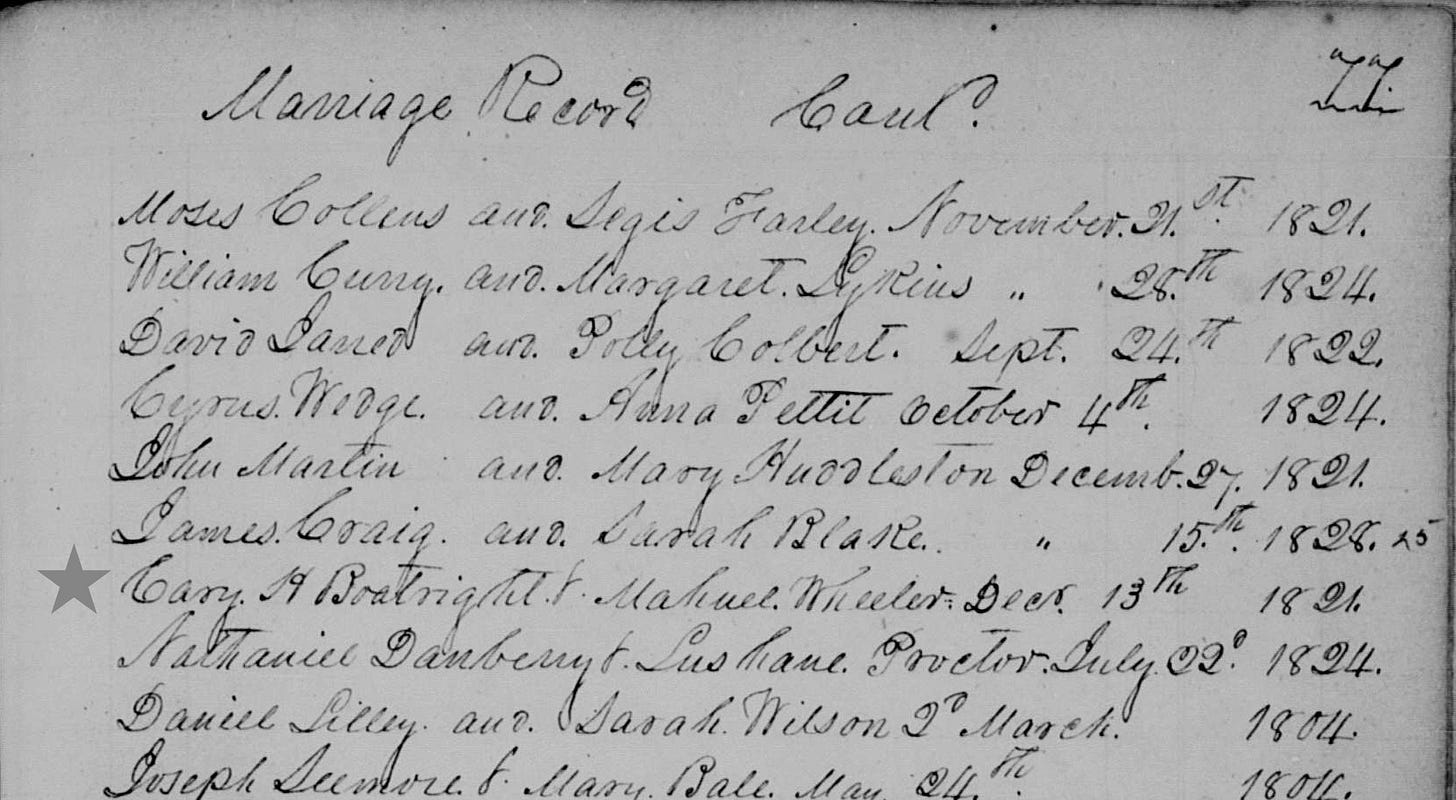 Marriage Record Cont.d 77
Moses Collens and. Segis Farley. November. 21.st 1821.
William Curry. and. Margaret. Lykins „ 28.th 1824.
David Jarred and. Polly Colbert. Sept. 24.th 1822.
Cyrus. Wedge. and. Anna Pettit October 4th. 1824.
John Martin and. Mary Huddleston Decemb. 27. 1821.
James. Craig. and. Sarah Blake. „ 15.th. 1828. 25
Cary. H Boatright. &. Mahuel. Wheeler. Decr. 13th 1821.
Nathaniel Danberry &. Lushane. Proctor. July. 22d. 1824.
Daniel Lilley. and. Sarah. Wilson 2d March. 1804.
Joseph Seemore. &. Mary. Bale. May. 24.th. 1804.